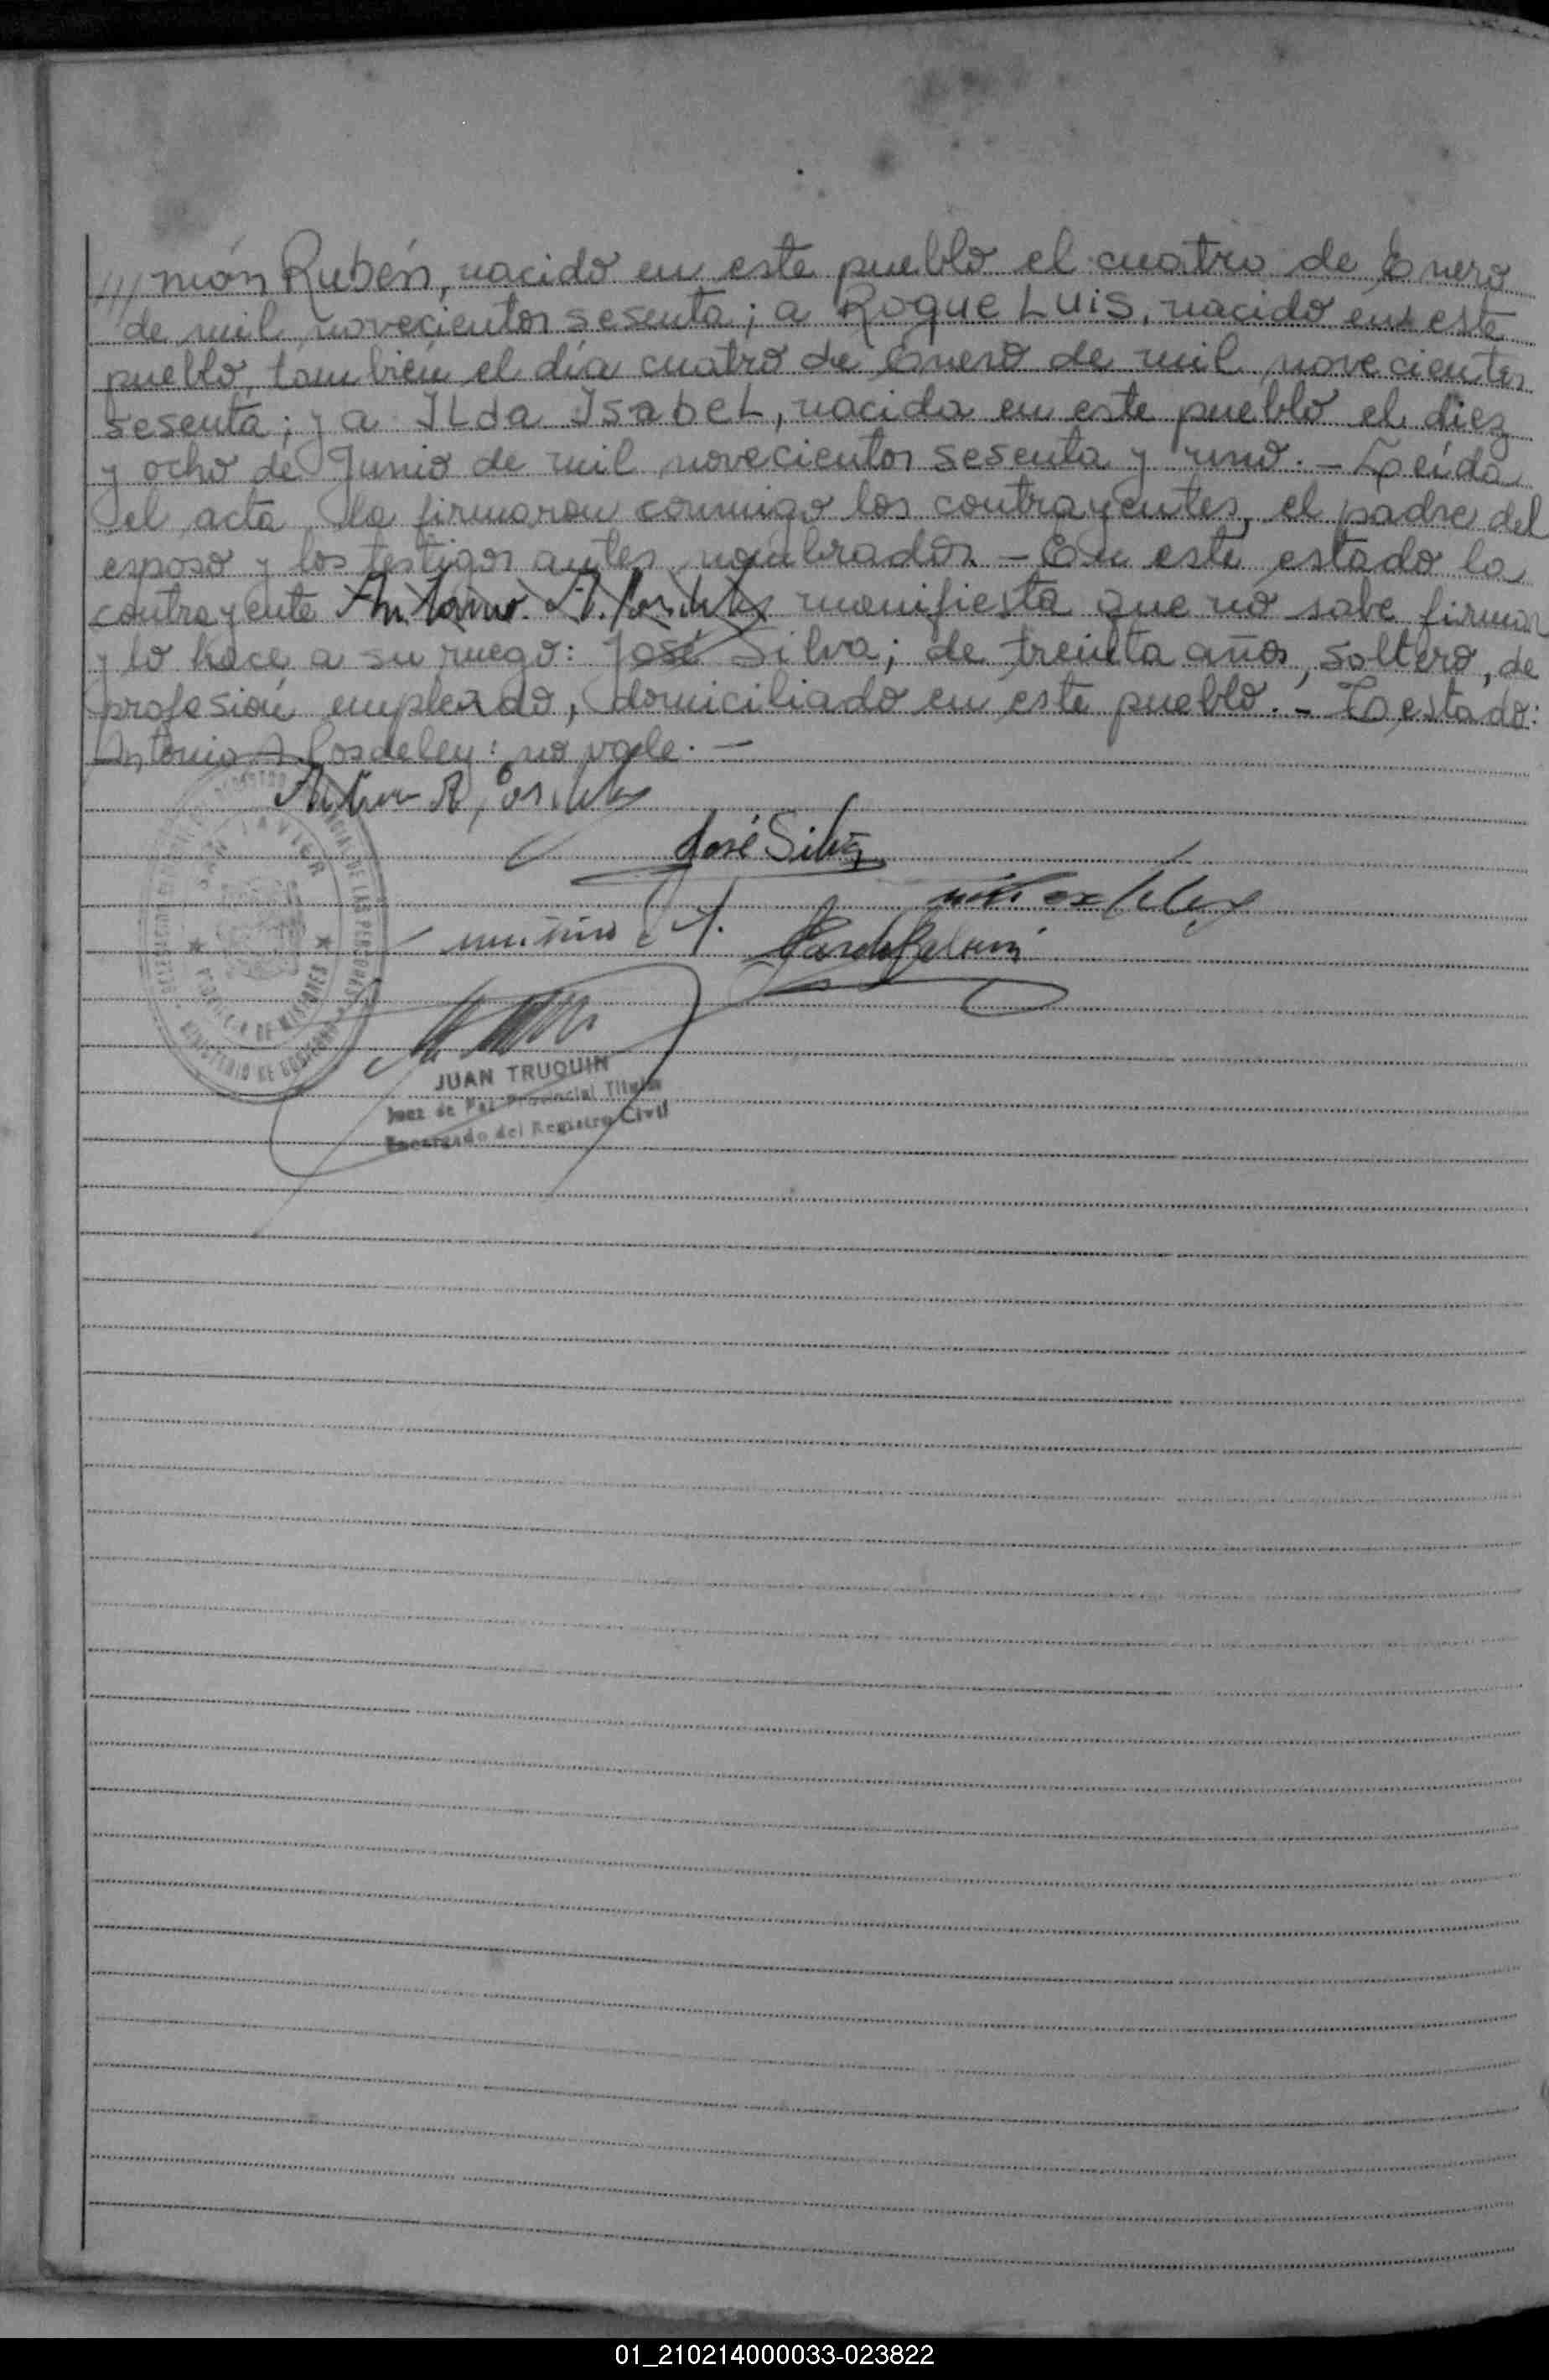 /// món Rubén, nacido en este pueblo el cuatro de Enero
de mil novecientos sesenta; a Roque LUiS, nacido en este
pueblo, también el día cuatro de Enero de mil novecientos
sesenta; y a ILda ISabeL, nacida en este pueblo el diez
y ocho de Junio de mil novecientos sesenta y uno. - Leída
el acta, la firmaron conmigo los contrayentes, el padre del
esposo y los testigos antes nombrados. - En este estado la
contrayente Antonio A. manifiesta que no sabe firmar
y lo hace a su ruego: José Silva; de treinta años, soltero, de
profesión empleado, domiciliado en este pueblo. - Testado:
Antonio A. Posdeley: no vale. -
José Silva
SAN JAVIER
PROVINCIA DE MISIONES
MINISTERIO DE GOBIERNO
DE LAS PERSONAS
JUAN TRUQUIN
Juez de Paz Provincial Titular
Encargado del Registro Civil
01_210214000033-023822